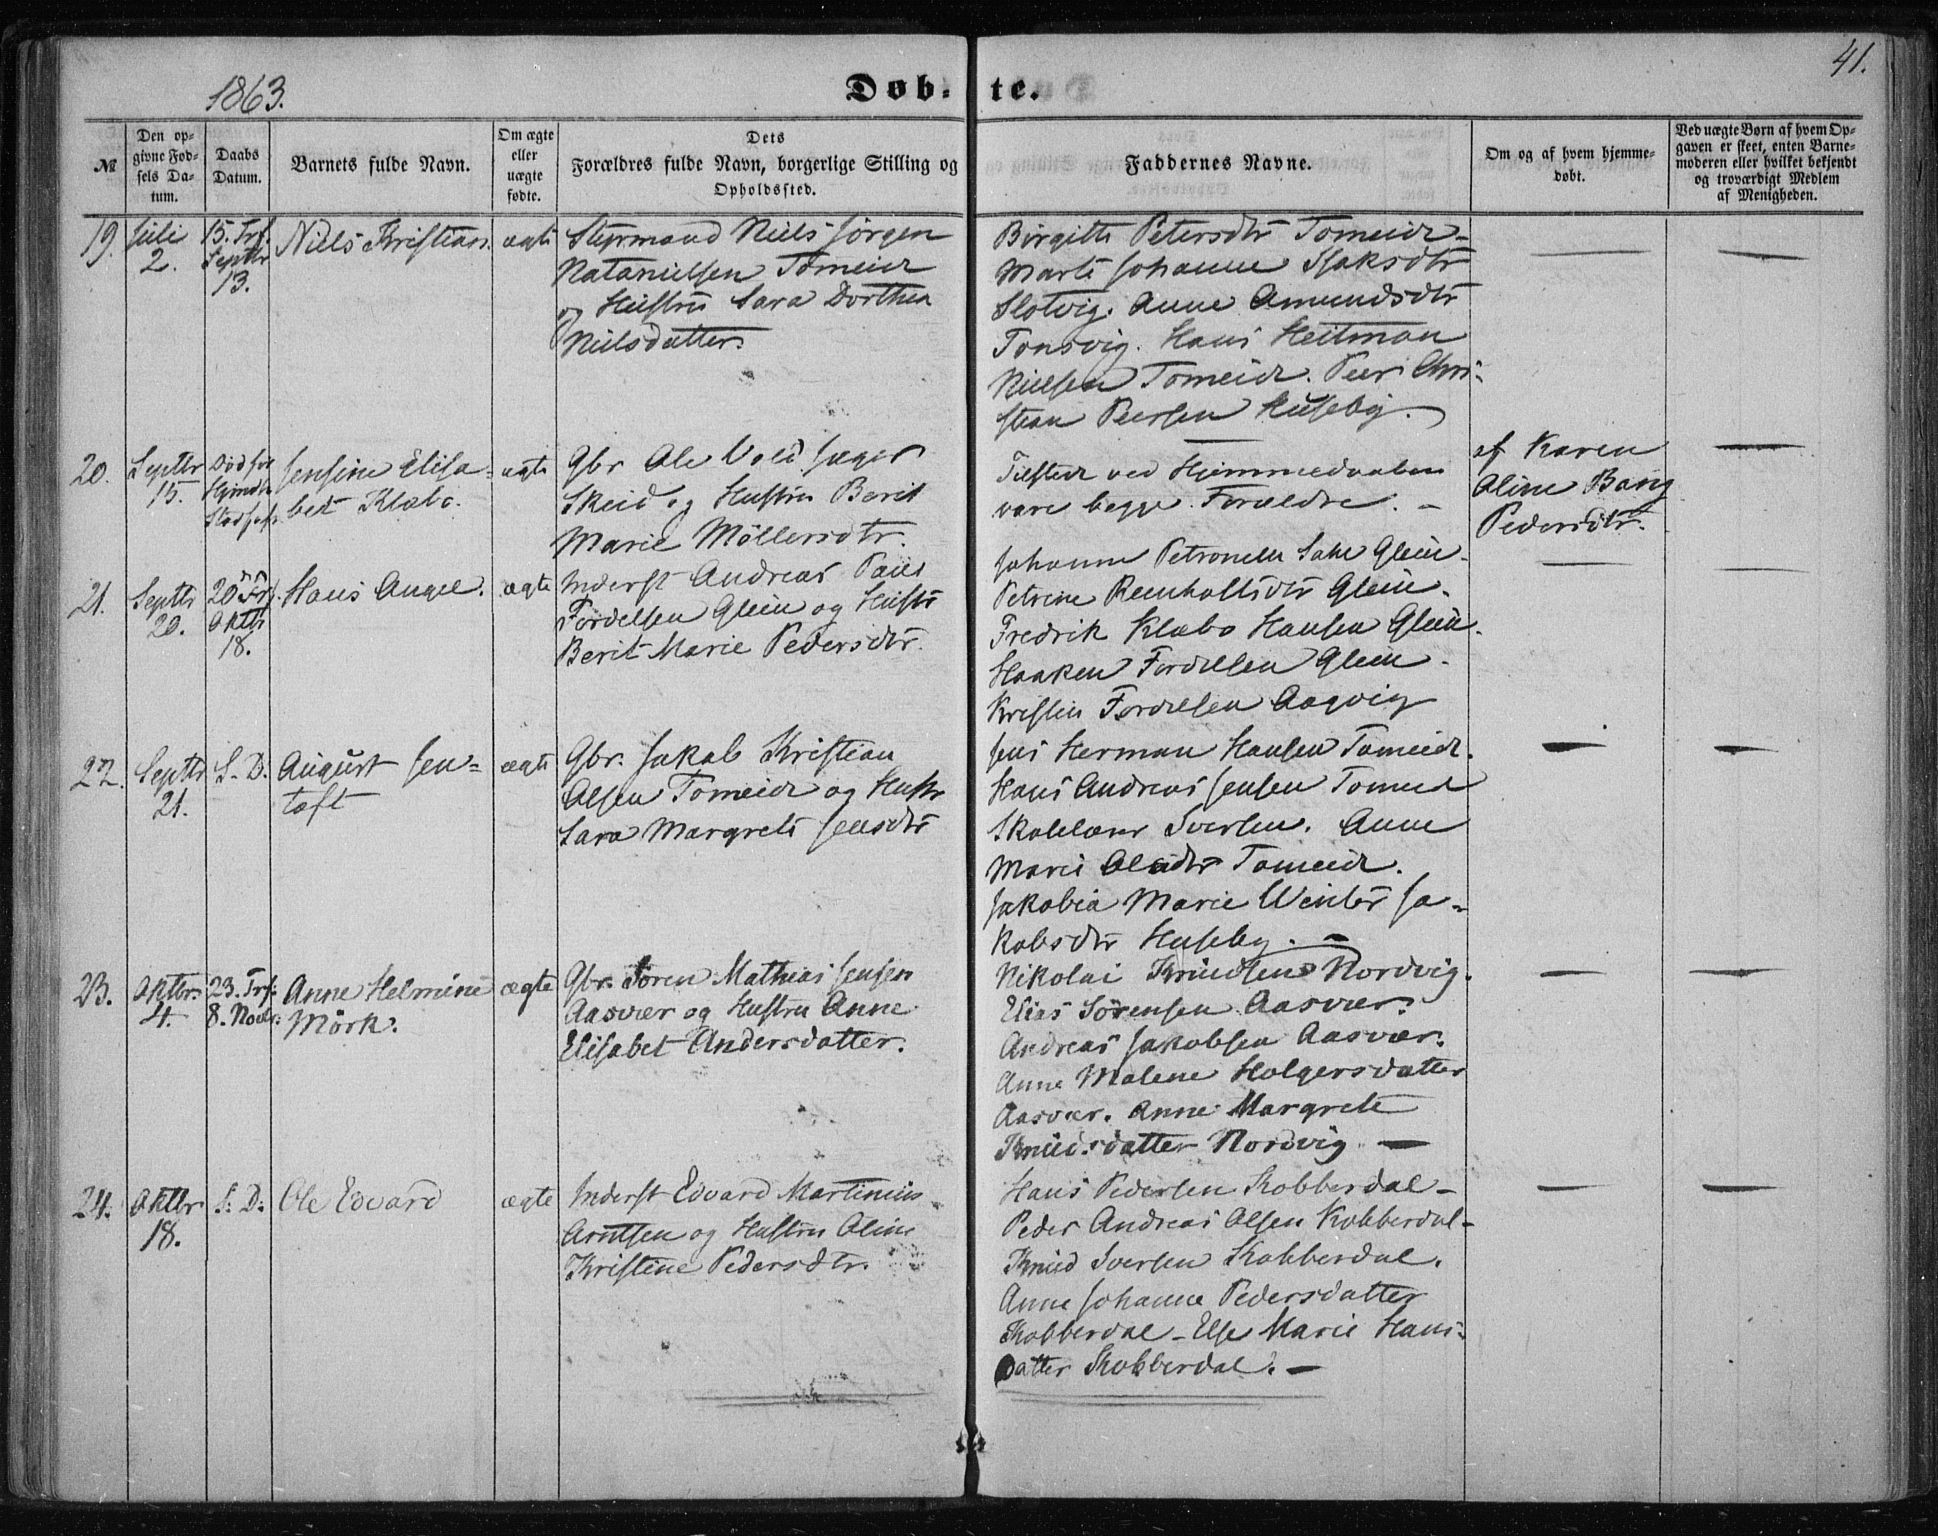 1863.
Døb-te.
41.
№
Den op-
givne Fød-
sels Da-
tum.
Daabs
Datum.
Barnets fulde Navn.
Om ægte
eller
uægte
fødte.
Dets
Forældres fulde Navn, borgerlige Stilling og
Opholdssted.
Faddernes Navne.
Om og af hvem hjemme-
døbt.
Ved uægte Børn af hvem Op-
gaven er skeet, enten Barne-
moderen eller hvilket bekjendt
og troværdigt Medlem
af Menigheden.
19.
Juli
2.
15. Trf.
Septbr
13.
Niels Kristian.
ægte
Styrmand Niels Jörgen
Natanielsen Tomeide
og Hustru Sara Dorthea
Nielsdatter.
Birgitte Petersdtr Tomeide-
Marte Johanne Isaksdtr
Slotvig. Anne Amundsdtr
Tonsvig. Hans Heitman
Nielsen Tomeide. Peer Chri-
stian Peersen Huseby.
—
—
20.
Septbr
15.
Död før
Jensine Elisa-
bet Klæbo.
ægte
Gbr Ole Vold Jæger
Skeid og Hustru Berit
Marie Möllersdtr.
Tilstede ved Hjemmedaaben
vare begge Forældre. -
af Karen
Aline Bang
Pedersdtr.
—
21.
Septbr
20.
20 Trf.
Oktbr
18.
Hans Angel.
ægte
Inderst Andreas Paul
Fordelsen Glein og Hustr
Berit Marie Pedersdtr.
Johanne Petronelle Glein-
Petrine Reinholtsdtr Glein.
Fredrik Klæbo Hansen Glein.
Haaken Fordelsen Glein-
Kristen Fordelsen Aagvig
—
—
22.
Septbr
21.
S. D.
August Jen-
toft
ægte
Gbr. Jakob Kristian
Olsen Tomeide og Hustr
Sara Margrete Jensdtr
Jens Herman Hansen Tomeide.
Hans Andreas Jensen Tomeide
Skolelærer Iversen. Anne
Marie Olsdtr Tomeide.
Jakobia Marie Winter Ja-
kobsdtr Huseby. —
—
—
23.
Oktbr.
4.
23. Trf:
8. Novbr.
Anne Helmine
Mörk.
ægte
Gbr. Sören Mathias Jensen
Aasvær og Hustru Anne
Elisabet Andersdatter.
Nikolai Knudsen Nordvig.
Elias Sörensen Aasvær.
Andreas Jakobsen Aasvær.
Anne Malene Holgersdatter
Aasvær. Anne Margrete
Knudsdatter Nordvig —
—
—
24.
Oktbr
18.
S: D:
Ole Edvard
ægte
Inderst Edvard Martinius
Arntsen og Hustru Oline
Kristine Pedersdtr.
Hans Pedersen Kobberdal-
Peder Andreas Olsen Kobberdal-
Knud Iversen Kobberdal.
Anne Johanne Pedersdatter
Kobberdal - Else Marie Hans-
datter Kobberdal. —
—
—